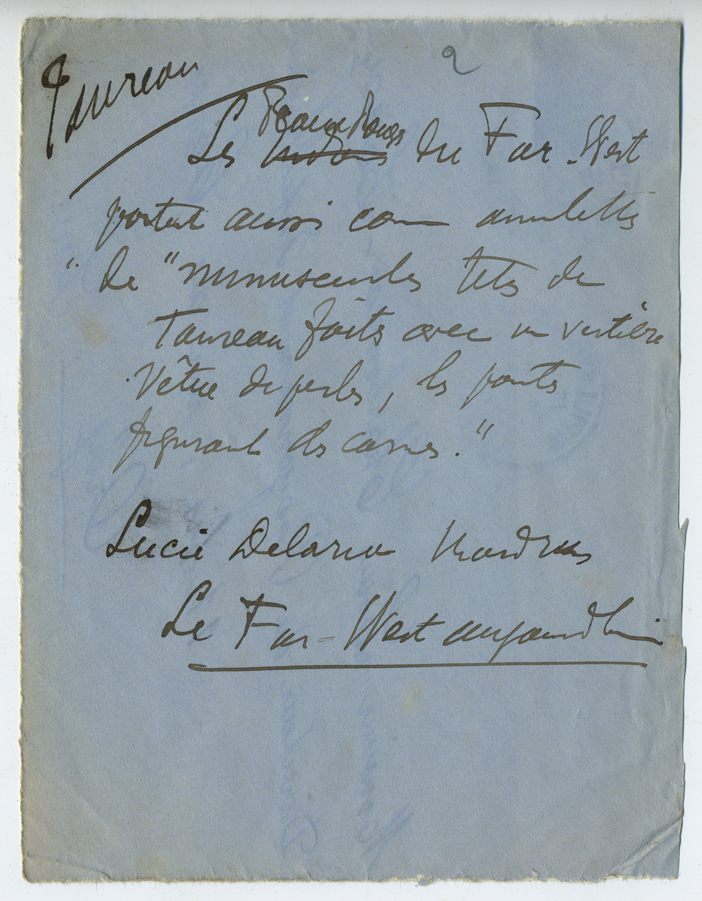 Taureau
2
Peaux Rouges
Les Indiens du Far-West
portent aussi comme amulettes
" de "minuscules têtes de
Taureau faites avec une vertèbre
vêtue de perles, les pointes
figurant des cornes."
Lucie Delarue Mardrus
Le Far-West aujourd'hui